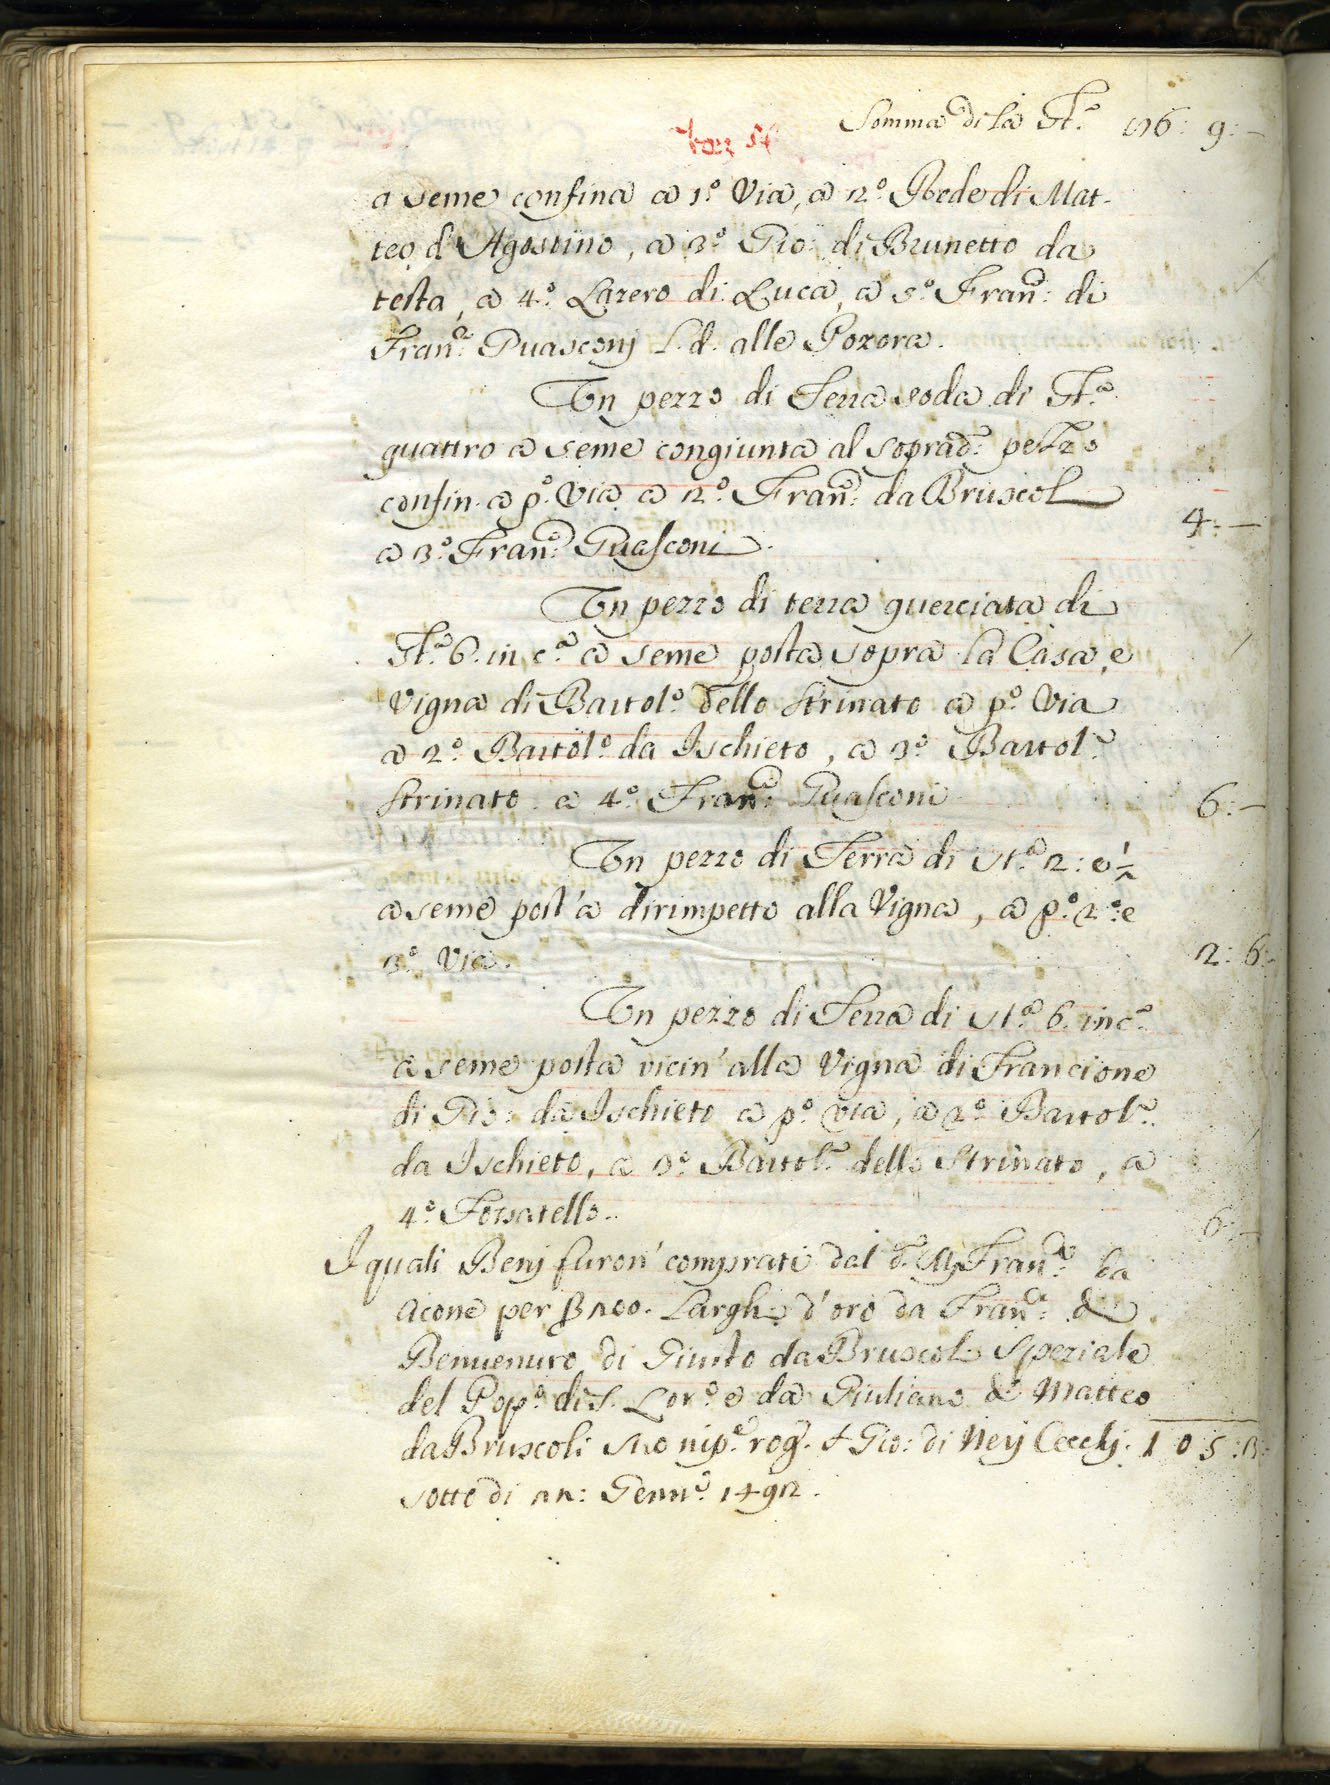 Somma di la St.ª 176: 9:—
a seme confina a 1.º Via, a 2.º Rede di Mat-
teo d'Agostino, a 3.º Gio: di Brunetto da
testa, a 4.º Lazero di Luca, a 5.º Fran.º: di
Fran.º Guasconj L.d. alle Pozora.
Un pezzo di Terra soda di St.ª
quattro a seme congiunta al soprad.º pezzo
confin. a p.º Via a 2.º Fran.º: da Bruscol
4:—
a 3.º Fran.º: Guasconi.
Un pezzo di terra querciata di
St.ª 6. in c.ª a seme posta sopra la Casa, e
Vigna di Bartol.º dello Strinato a p.º Via
a 2.º Bartol.º da Ischieto, a 3.º Bartol.º
Strinato a 4.º Fran.º: Guasconi 6:—
Un pezzo di Terra di St.ª 2: e ½
a seme post'a dirimpetto alla Vigna, a p.º 2.º e
3.º Via. 2: 6:
Un pezzo di Terra di St.ª 6. in c.ª
a seme posta vicin'alla Vigna di Francione
di Gio: da Ischieto a p.º via, a 2.º Bartol.º
da Ischieto, a 3.º Bartol.º dello Strinato, a
4.º Fossatello. 6:—
I quali Benj furon' comprati dal d. Fran.º da
Acone per Largh: d'oro da Fran.º: &
Benuenuto di Giunto da Bruscol: Speziale
del Pop.º di S. Lor.º e da Giuliano & Matteo
da Bruscoli suo nip.e rog. Gio: di Neij Cecchj. 105:
sotto di Genn.º 1492.